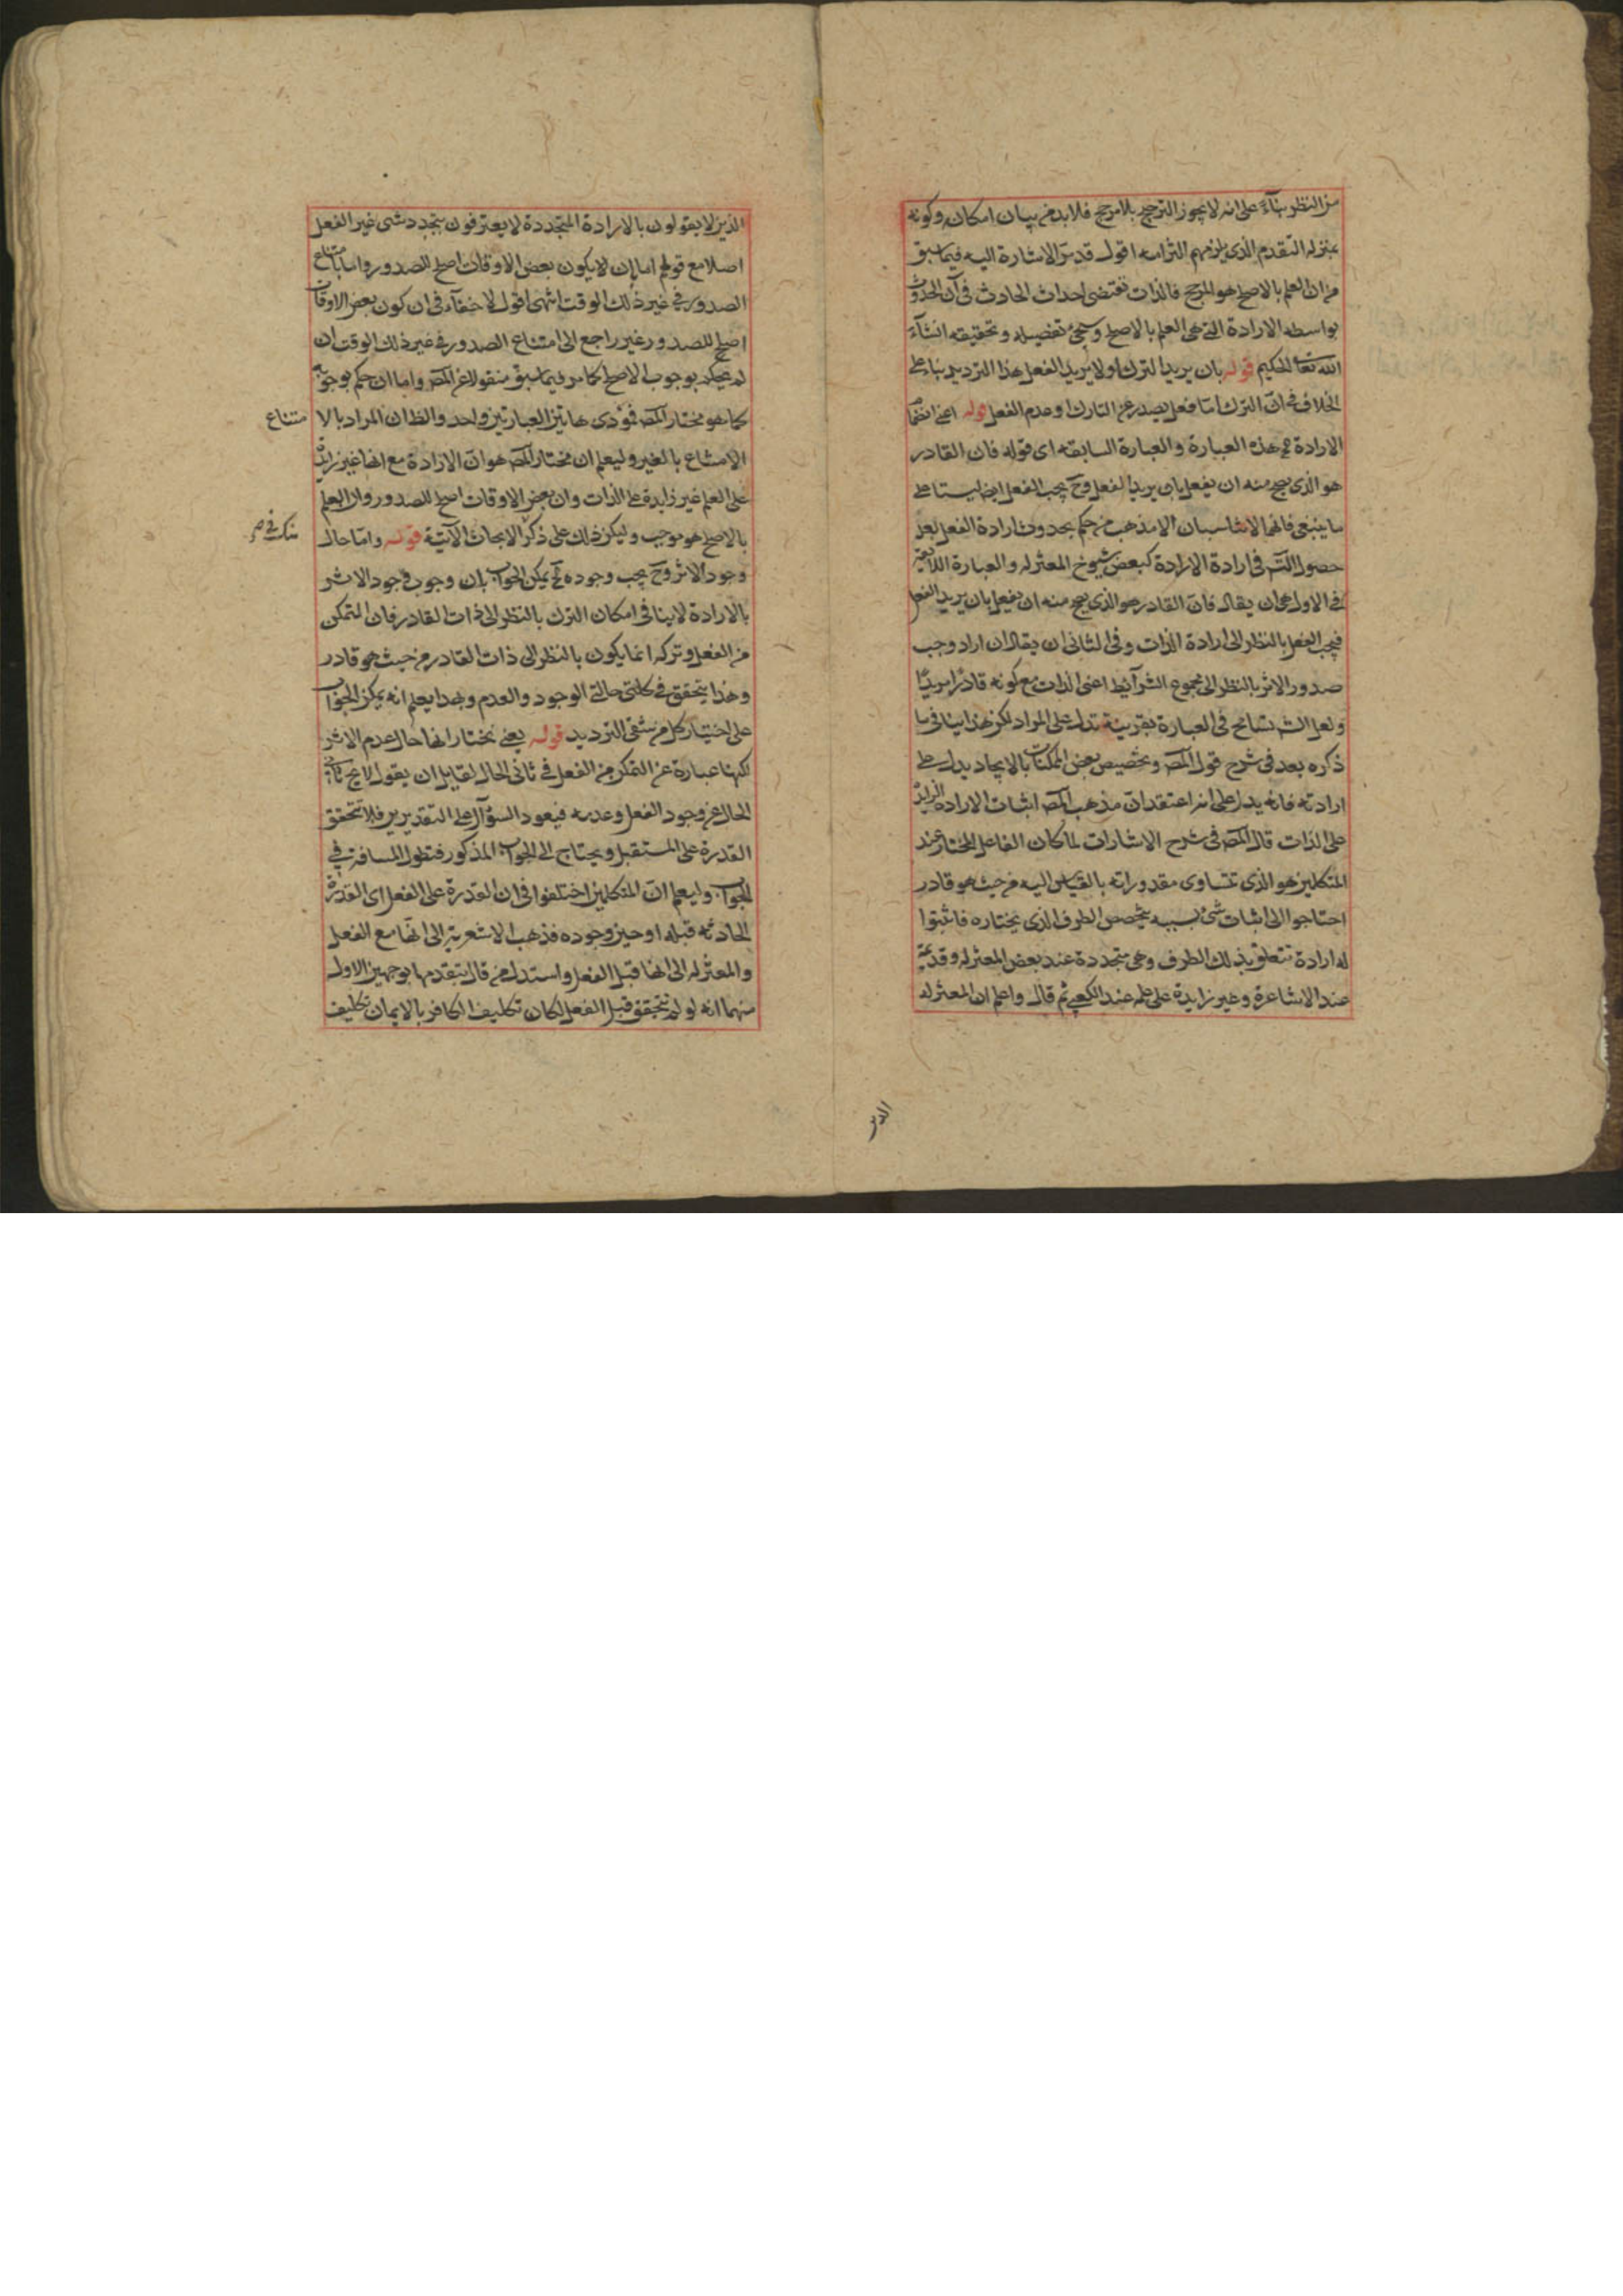 من النظر بناءً على انه لا يجوز الترجيح بلا مرجح فلا بد من بيان امكان وكونه
بمنزله التقدم الذى يلزمهم التزامه اقول قد مر الاشارة اليه فيما سبق
من ان العلم بالاصلح هو المرجح فالذات تقتضى احداث الحادث فى آن الحدوث
بواسطه الارادة التى هى العلم بالاصلح وسيجئ تفصيله وتحقيقه انشاء
الله تعالى الحكيم قوله بان يريد الترك او لا يريد الفعل هذا الترديد بناء على
الخلاف فى ان الترك اما فعل يصدر عن التارك او عدم الفعل قوله اعنى انضمام
الارادة هذه العبارة والعبارة السابقه اى قوله فان القادر
هو الذى يصح منه ان يفعل بان يريد الفعل وح يجب الفعل ايضا ليستا على
ما ينبغى فانهما لا تناسبان الا مذهب من حكم بحدوث ارادة الفعل بعد
حصول فى ارادة الارادة كبعض شيوخ المعتزله والعبارة اللائقه
فى الاول هى ان يقال فان القادر هو الذى يصح منه ان يفعل بان يريد الفعل
فيجب الفعل بالنظر الى ارادة الذات وفى الثانى ان يقال ان اراد وجب
صدور الاثر بالنظر الى مجموع الشرآئط اعنى الذات مع كونه قادرًا مريدًا
ولعل الش تسامح فى العبارة بقرينة تدل على المراد لكن هذا ينافى ما
ذكره بعد فى شرح قول المص وتخصيص بعض الممكنات بالايجاد يدل على
ارادته فانه يدل على انه اعتقد ان مذهب المص اثبات الارادة الزايدة
على الذات قال المص فى شرح الاشارات لما كان الفاعل المختار عند
المتكلمين هو الذى تتساوى مقدوراته بالقياس اليه من حيث هو قادر
احتاجوا الى اثبات شئ بسببه يتخصص الطرف الذى يختاره فاثبتوا
له ارادة تتعلق بذلك الطرف وهى متجددة عند بعض المعتزله وقديمة
عند الاشاعرة وغير زايدة على علمه عند الكعبى ثم قال واعلم ان المعتزله
الذين
الذين لا يقولون بالارادة المتجددة لا يعترفون بتجدد شى غير الفعل
اصلا مع قولهم اما بان لا يكون بعض الاوقات اصلح للصدور واما بامتناع
الصدور فى غير ذلك الوقت انتهى اقول لا خفآء فى ان كون بعض الاوقات
اصلح للصدور غير راجع الى امتناع الصدور فى غير ذلك الوقت ان
لم يحكم بوجوب الاصلح كما مر فيما سبق منقولا عن المص واما ان حكم بوجوبه
كما هو مختار المص فمؤدى هاتين العبارتين واحد والظ ان المراد بالا
متناع
الامتناع بالغير وليعلم ان مختار المص هو ان الارادة مع انها غير زايدة
على العلم غير زايدة على الذات وان بعض الاوقات اصلح للصدور وان العلم
بالاصلح هو موجب وليكن ذلك على ذكر الابحاث الآتية قوله واما حال
منك فى
وجود الاثر وح يجب وجوده يمكن الجواب بان وجوب وجود الاثر
بالارادة لا ينافى امكان الترك بالنظر الى ذات القادر فان التمكن
من الفعل وتركه انما يكون بالنظر الى ذات القادر من حيث هو قادر
وهذا يتحقق فى كلتى حالتى الوجود والعدم وبهذا يعلم انه يمكن الجواب
على اختيار كل من شقى الترديد قوله يعنى نختار انها حال عدم الاثر
لكنها عبارة عن التمكن من الفعل فى ثانى الحال لقايل ان يقول لا يخ ثانى
الحال عن وجود الفعل وعدمه فيعود السؤآل على التقديرين فلا تتحقق
القدرة على المستقبل ويحتاج الى الجواب المذكور فتطول المسافة فى
الجواب وليعلم ان المتكلمين اختلفوا فى ان القدرة على الفعل اى القدرة
الحادثه قبله او حين وجوده فذهب الاشعرية الى انها مع الفعل
والمعتزله الى انها قبل الفعل واستدل من قال بتقدمها بوجهين الاول
منهما انه لو لم تتحقق قبل الفعل لكان تكليف الكافر بالايمان تكليف